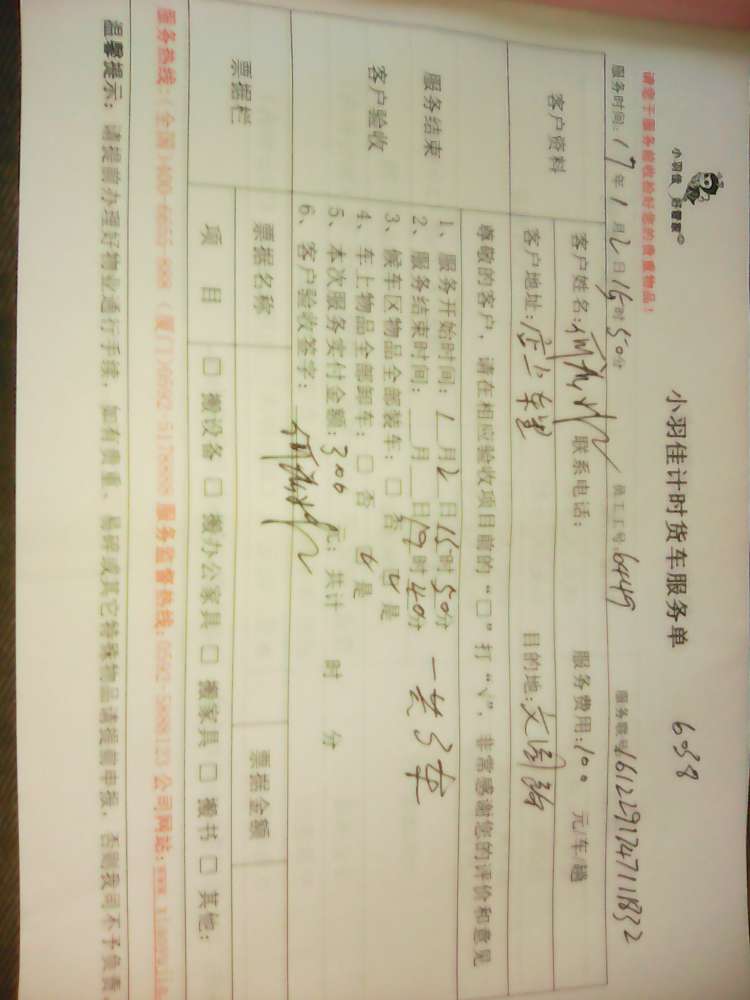 小羽佳 好管家
小羽佳计时货车服务单 6038
请您于服务前收捡好您的贵重物品！
服务时间：17年1月2日15时50分 员工工号：6449 服务账号：1612291747111832
客户资料
客户姓名： 联系电话： 服务费用：100 元/车/趟
客户地址：店上东里 目的地：
尊敬的客户，请在相应验收项目前的“□”打“√”，非常感谢您的评价和意见
服务结束
客户验收
1、服务开始时间：1月2日15时50分
2、服务结束时间：__月__日19时40分 一共3车
3、候车区物品全部装车：□否 √是
4、车上物品全部卸车：□否 √是
5、本次服务实付金额：300元；共计 时 分
6、客户验收签字：
票据栏
票据名称 票据金额
项 目 □搬设备 □搬办公家具 □搬家具 □搬书 □其他：
服务热线：（全国）400-6655-888 （厦门）0592-5178888 服务监督热线：0592-5888123 公司网站：www.xiaoyujia
温馨提示：请提前办理好物业通行手续，如有贵重、易碎或其它特殊物品请提前申报，否则我司不予负责。